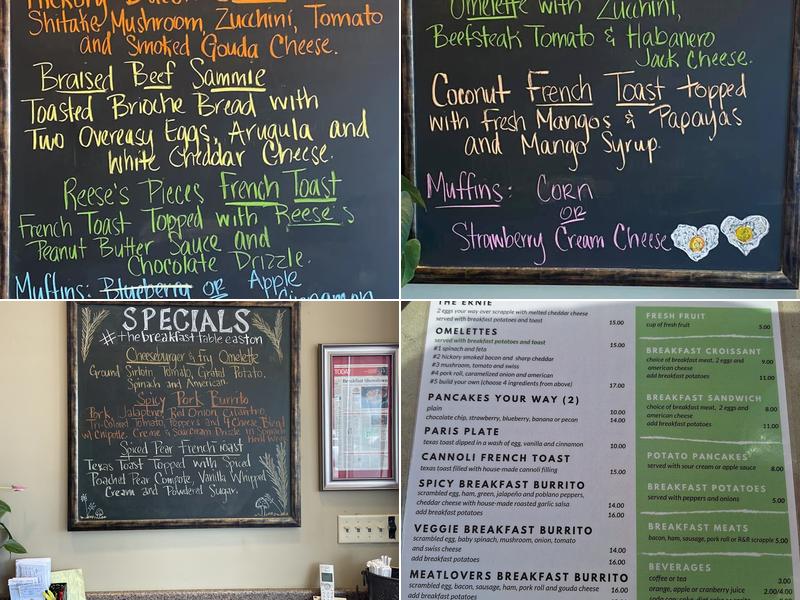 Hickory Bacon
Shitake Mushroom, Zucchini, Tomato
and Smoked Gouda Cheese.
Braised Beef Sammie
Toasted Brioche Bread with
Two Overeasy Eggs, Arugula and
White Cheddar Cheese.
Reese's Pieces French Toast
French Toast Topped with Reese's
Peanut Butter Sauce and
Chocolate Drizzle.
Muffins: Blueberry or Apple
Cinnamon
Omelette with Zucchini,
Beefsteak Tomato & Habanero
Jack Cheese.
Coconut French Toast topped
with Fresh Mangos & Papayas
and Mango Syrup.
Muffins: Corn
OR
Strawberry Cream Cheese
SPECIALS
#the breakfast table easton
Cheeseburger & Fry Omelette
Ground Sirloin, Tomato, Grated Potato,
Spinach and American.
Spicy Pork Burrito
Pork, Jalapeño, Red Onion, Cilantro,
Tri-Colored Tomato, Peppers and 4 Cheese Blend
w/ Chipotle Creme & Sour Cream Drizzle in Spinach
Spiced Pear French Toast
Texas Toast Topped with Spiced
Poached Pear Compote, Vanilla Whipped
Cream and Powdered Sugar.
TODAY
THE ERNIE
2 eggs your way over scrapple with melted cheddar cheese
served with breakfast potatoes and toast 15.00
OMELETTES
served with breakfast potatoes and toast 15.00
#1 spinach and feta
#2 hickory smoked bacon and sharp cheddar
#3 mushroom, tomato and swiss
#4 pork roll, caramelized onion and american
#5 build your own (choose 4 ingredients from above) 17.00
PANCAKES YOUR WAY (2)
plain 10.00
chocolate chip, strawberry, blueberry, banana or pecan 14.00
PARIS PLATE
texas toast dipped in a wash of egg, vanilla and cinnamon 10.00
CANNOLI FRENCH TOAST
texas toast filled with house-made cannoli filling 15.00
SPICY BREAKFAST BURRITO
scrambled egg, ham, green, jalapeño and poblano peppers,
cheddar cheese with house-made roasted garlic salsa 14.00
add breakfast potatoes 16.00
VEGGIE BREAKFAST BURRITO
scrambled egg, baby spinach, mushroom, onion, tomato
and swiss cheese 14.00
add breakfast potatoes 16.00
MEATLOVERS BREAKFAST BURRITO
scrambled egg, bacon, sausage, ham, pork roll and gouda cheese 16.00
add breakfast potatoes
FRESH FRUIT
cup of fresh fruit 5.00
BREAKFAST CROISSANT
choice of breakfast meat, 2 eggs and 9.00
american cheese
add breakfast potatoes 11.00
BREAKFAST SANDWICH
choice of breakfast meat, 2 eggs and 8.00
american cheese
add breakfast potatoes 11.00
POTATO PANCAKES
served with sour cream or apple sauce 8.00
BREAKFAST POTATOES
served with peppers and onions 5.00
BREAKFAST MEATS
bacon, ham, sausage, pork roll or R&R scrapple 5.00
BEVERAGES
coffee or tea 3.00
orange, apple or cranberry juice 2.00/4.00